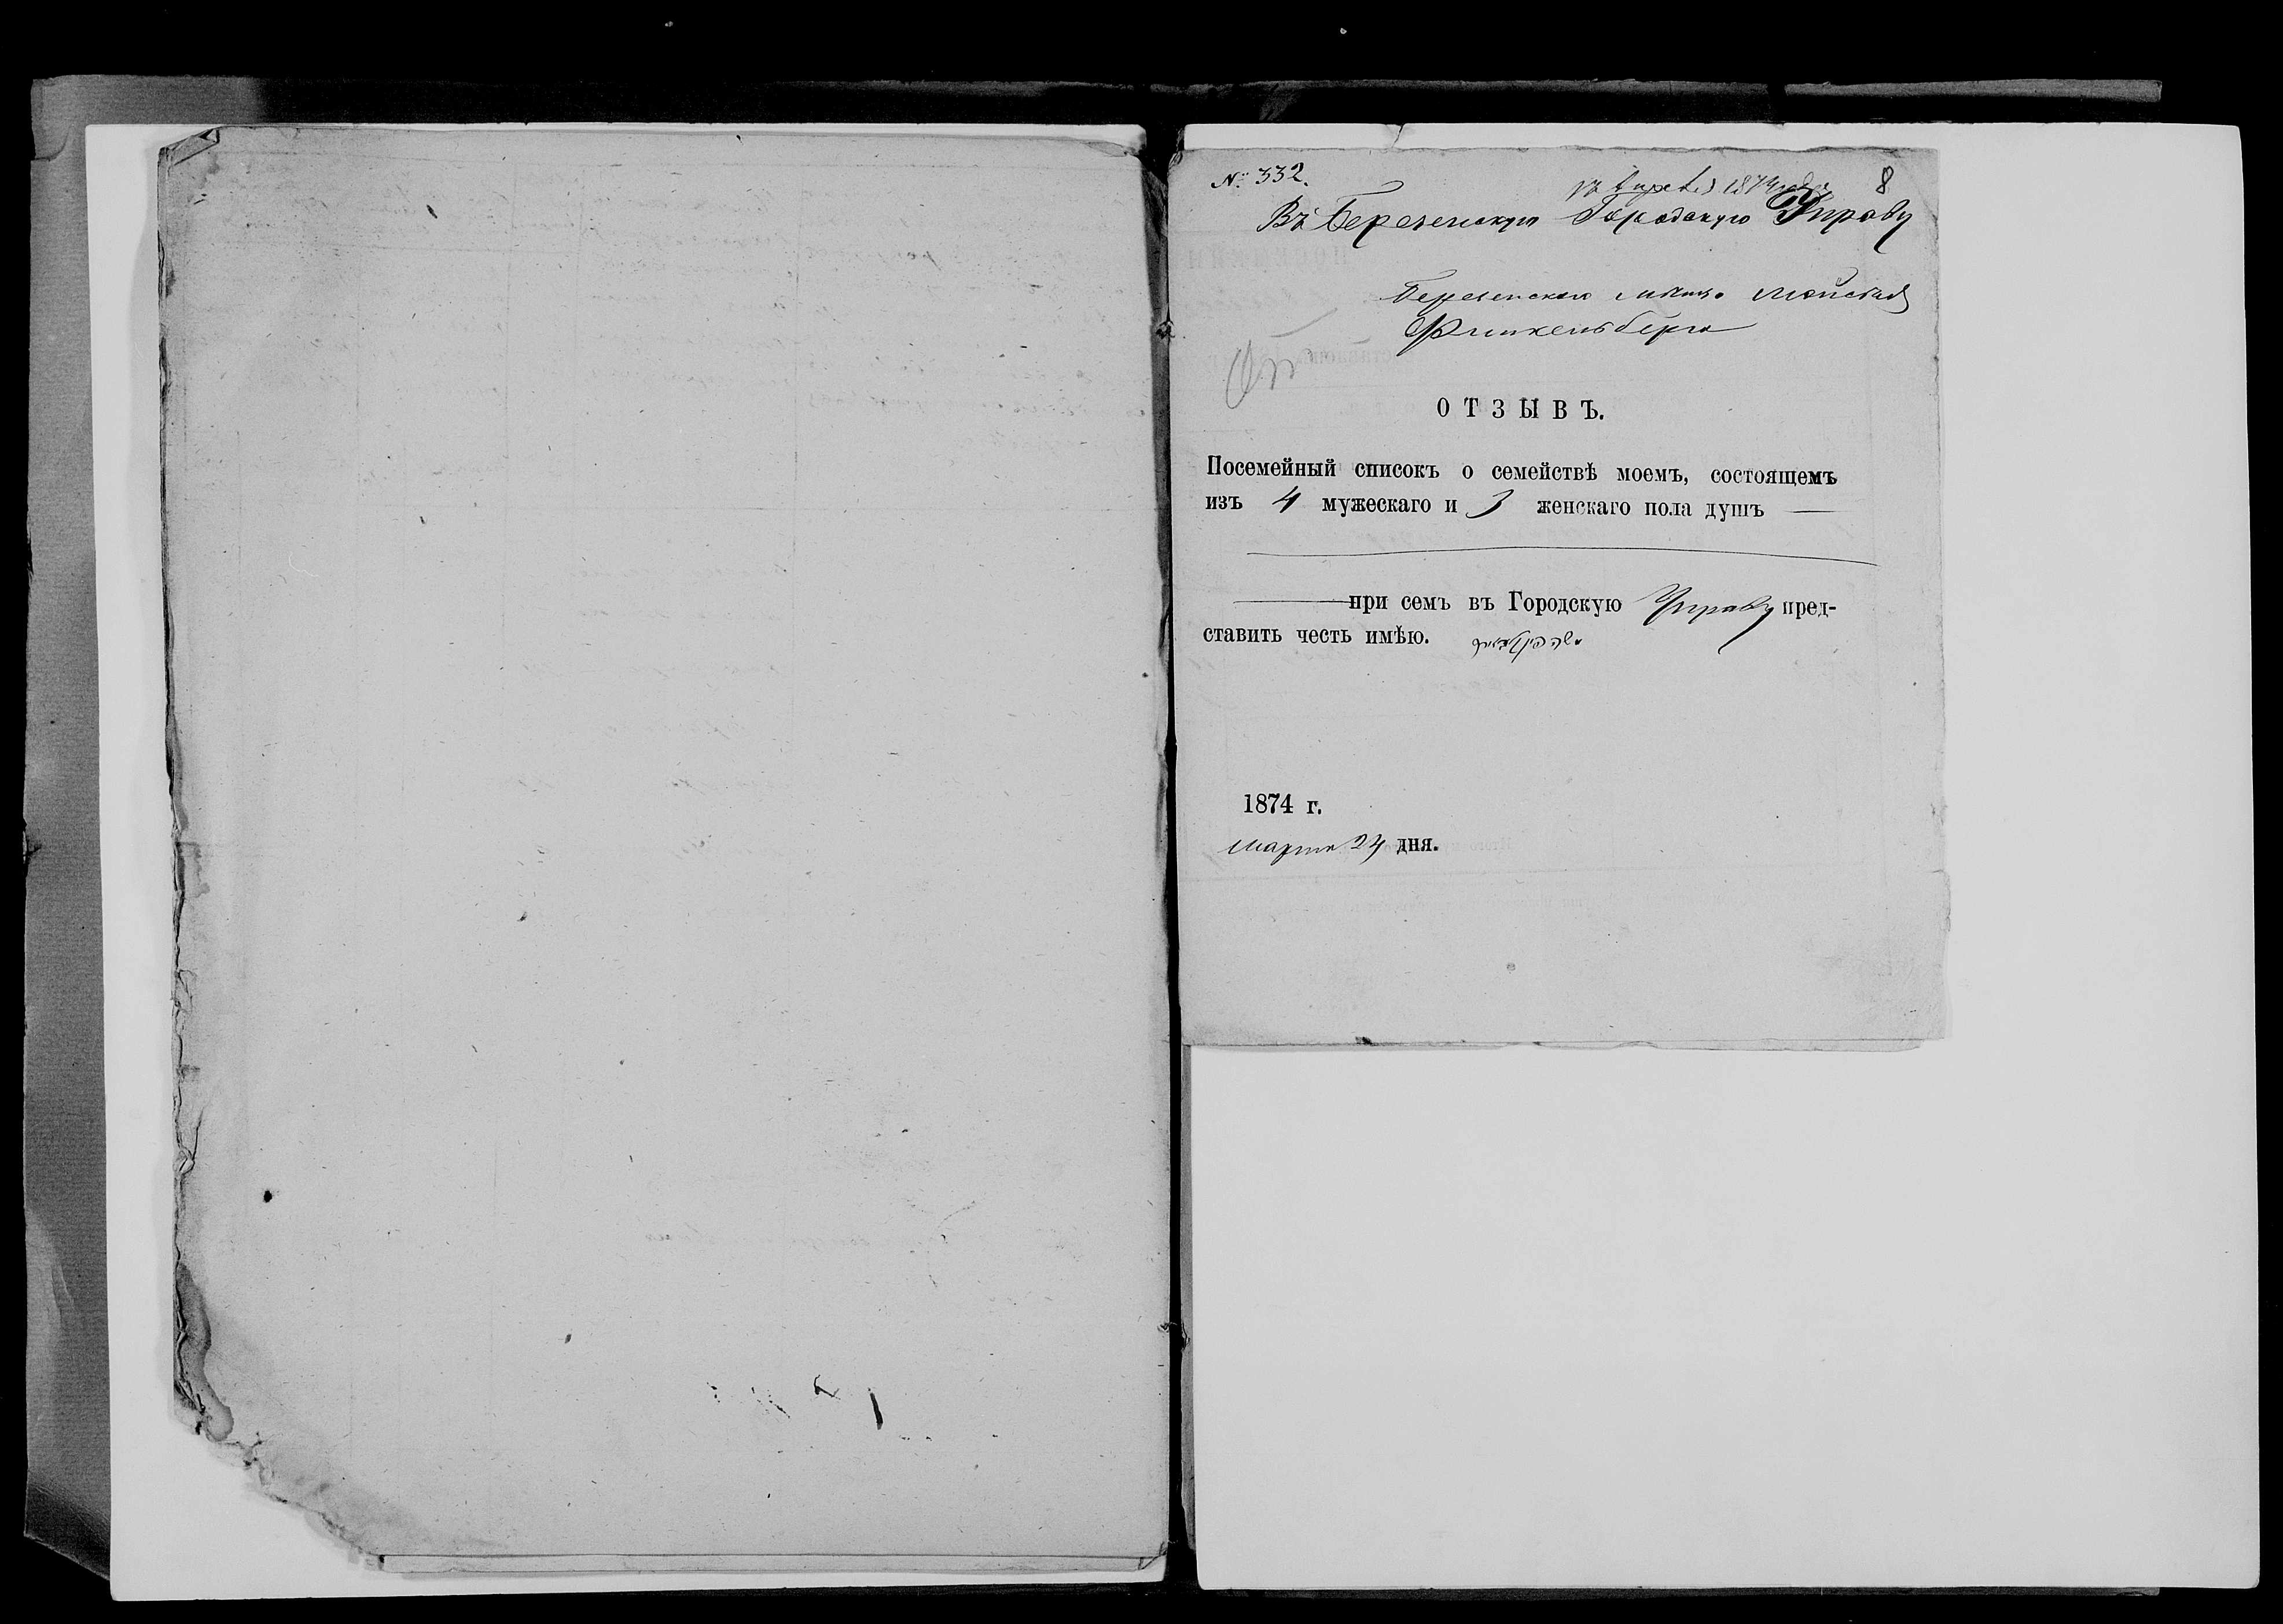 № 332.
12 Апреля 1874 года 8
Въ Березенскую Городскую Управу
Березенского мѣщ.
Финкельберга
ОТЗЫВЪ.
Посемейный списокъ о семействѣ моемъ, состоящемъ
изъ 4 мужескаго и 3 женскаго пола душъ
при семъ въ Городскую Управу пред-
ставить честь имѣю.
1874 г.
марта 24 дня.